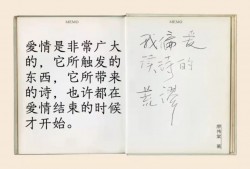 MEMO
爱情是非常广大
的，它所触发的
东西，它所带来
的诗，也许都在
爱情结束的时候
才开始。
MEMO
我偏爱
读诗的
荒谬